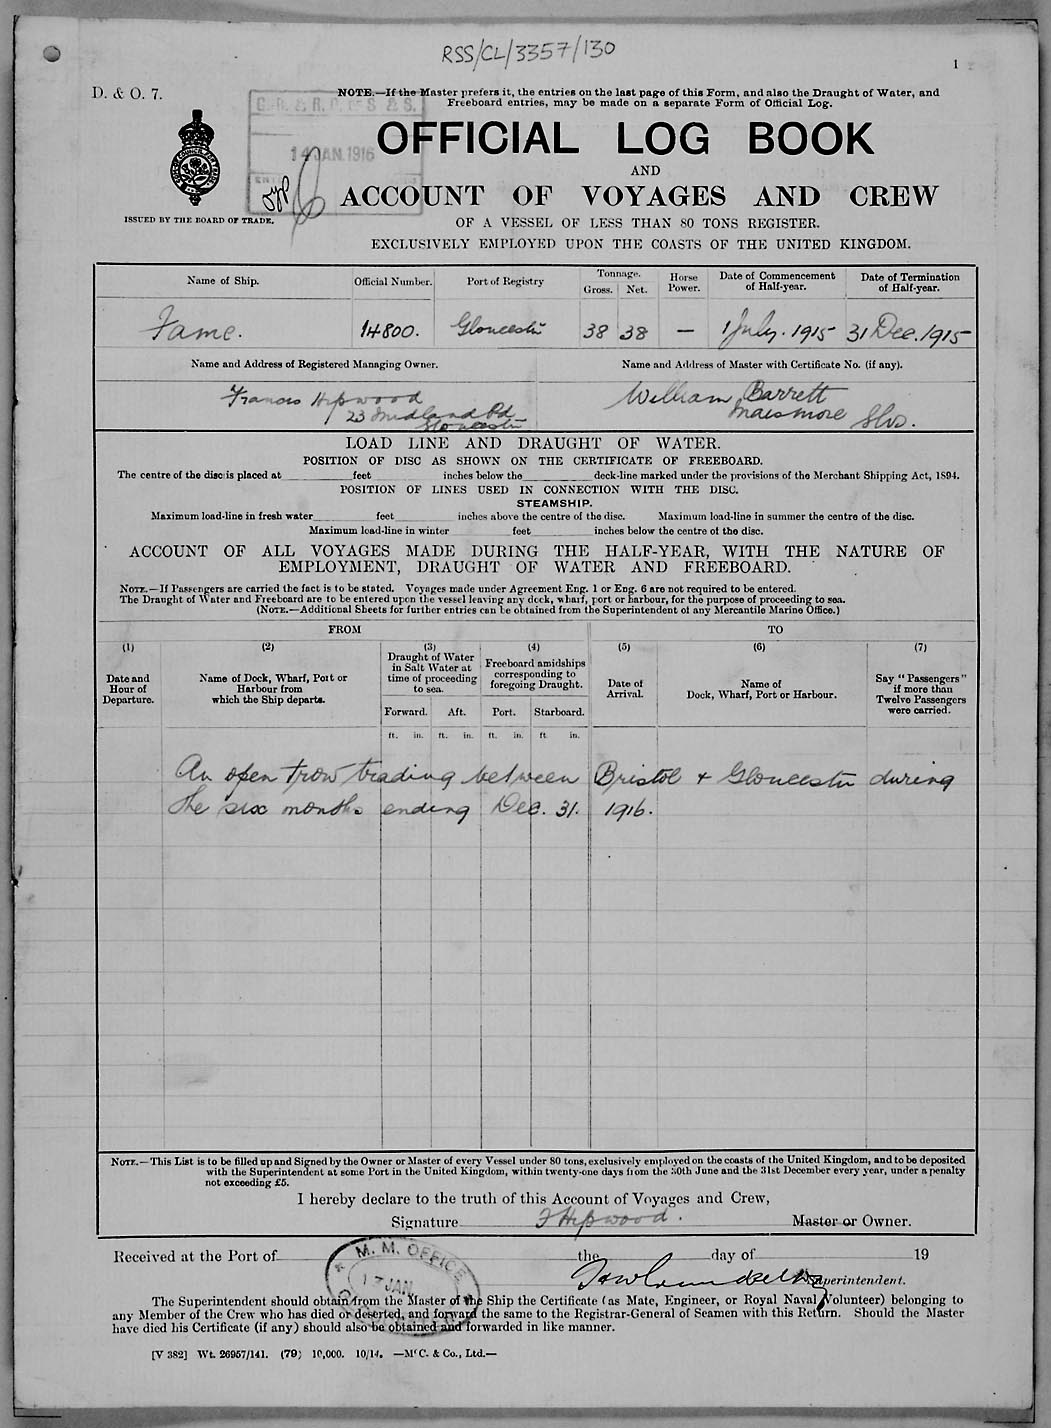 RSS/CL/3357/130
1
D. & O. 7.
NOTE.—If the Master prefers it, the entries on the last page of this Form, and also the Draught of Water, and
Freeboard entries, may be made on a separate Form of Official Log.
14 JAN. 1916
OFFICIAL LOG BOOK
AND
ACCOUNT OF VOYAGES AND CREW
ISSUED BY THE BOARD OF TRADE.
OF A VESSEL OF LESS THAN 80 TONS REGISTER.
EXCLUSIVELY EMPLOYED UPON THE COASTS OF THE UNITED KINGDOM.
Name of Ship. Official Number. Port of Registry Tonnage. Gross. Net. Horse Power. Date of Commencement of Half-year. Date of Termination of Half-year.
Fame. 14800. Gloucester 38 38 — 1 July. 1915 31 Dec. 1915
Name and Address of Registered Managing Owner. Name and Address of Master with Certificate No. (if any).
Francis Hipwood William Barrett
23 Midland Rd Maismore Glos.
Gloucester
LOAD LINE AND DRAUGHT OF WATER.
POSITION OF DISC AS SHOWN ON THE CERTIFICATE OF FREEBOARD.
The centre of the disc is placed at feet inches below the deck-line marked under the provisions of the Merchant Shipping Act, 1894.
POSITION OF LINES USED IN CONNECTION WITH THE DISC.
STEAMSHIP.
Maximum load-line in fresh water feet inches above the centre of the disc. Maximum load-line in summer the centre of the disc.
Maximum load-line in winter feet inches below the centre of the disc.
ACCOUNT OF ALL VOYAGES MADE DURING THE HALF-YEAR, WITH THE NATURE OF
EMPLOYMENT, DRAUGHT OF WATER AND FREEBOARD.
NOTE.—If Passengers are carried the fact is to be stated. Voyages made under Agreement Eng. 1 or Eng. 6 are not required to be entered.
The Draught of Water and Freeboard are to be entered upon the vessel leaving any dock, wharf, port or harbour, for the purpose of proceeding to sea.
(NOTE.—Additional Sheets for further entries can be obtained from the Superintendent of any Mercantile Marine Office.)
FROM TO
(1) (2) (3) (4) (5) (6) (7)
Date and Hour of Departure. Name of Dock, Wharf, Port or Harbour from which the Ship departs. Draught of Water in Salt Water at time of proceeding to sea. Freeboard amidships corresponding to foregoing Draught. Date of Arrival. Name of Dock, Wharf, Port or Harbour. Say "Passengers" if more than Twelve Passengers were carried.
Forward. Aft. Port. Starboard.
ft. in. ft. in. ft. in. ft in.
An open trow trading between Bristol & Gloucester during
the six months ending Dec. 31. 1916.
NOTE.—This List is to be filled up and Signed by the Owner or Master of every Vessel under 80 tons, exclusively employed on the coasts of the United Kingdom, and to be deposited
with the Superintendent at some Port in the United Kingdom, within twenty-one days from the 30th June and the 31st December every year, under a penalty
not exceeding £5.
I hereby declare to the truth of this Account of Voyages and Crew,
Signature F Hipwood. Master or Owner.
Received at the Port of the day of 19
M. M. OFFICE
17 JAN
Superintendent.
The Superintendent should obtain from the Master of the Ship the Certificate (as Mate, Engineer, or Royal Naval Volunteer) belonging to
any Member of the Crew who has died or deserted, and forward the same to the Registrar-General of Seamen with this Return. Should the Master
have died his Certificate (if any) should also be obtained and forwarded in like manner.
[V 382] Wt. 26957/141. (79) 10,000. 10/14. —McC. & Co., Ltd.—